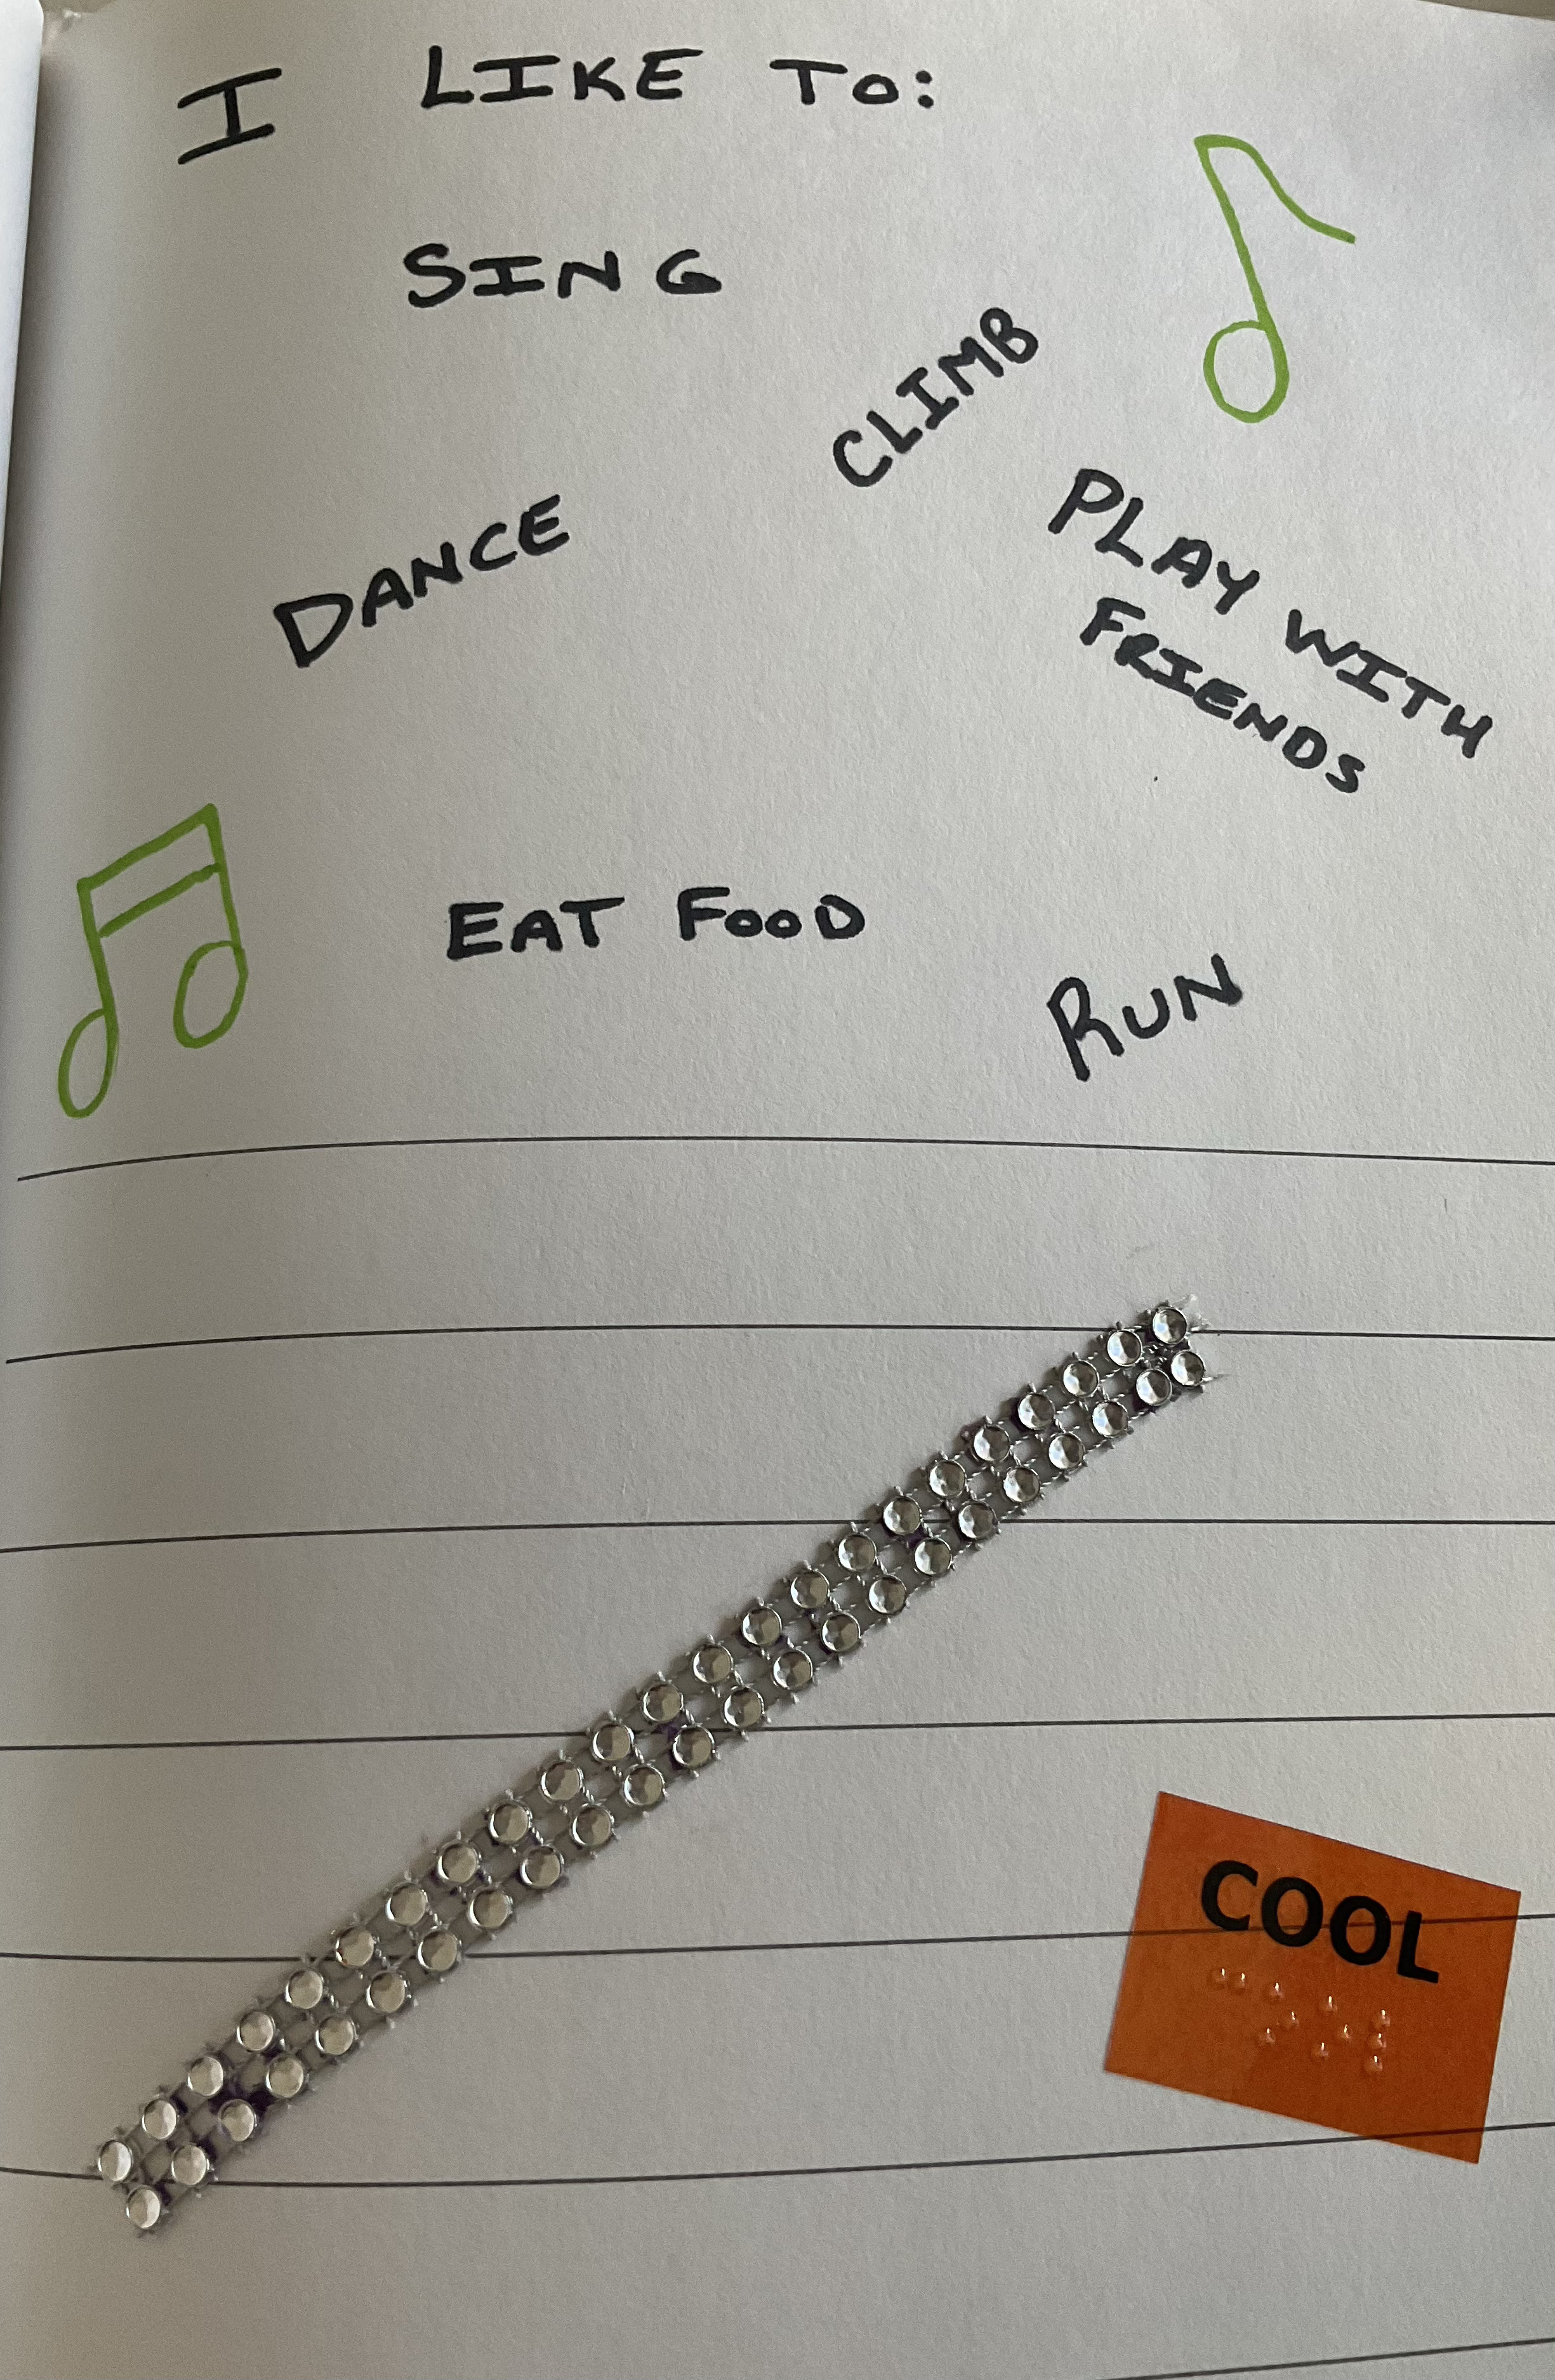 I LIKE TO:
SING
CLIMB
DANCE
PLAY WITH
FRIENDS
EAT FOOD
RUN
COOL
⠉⠕⠕⠇